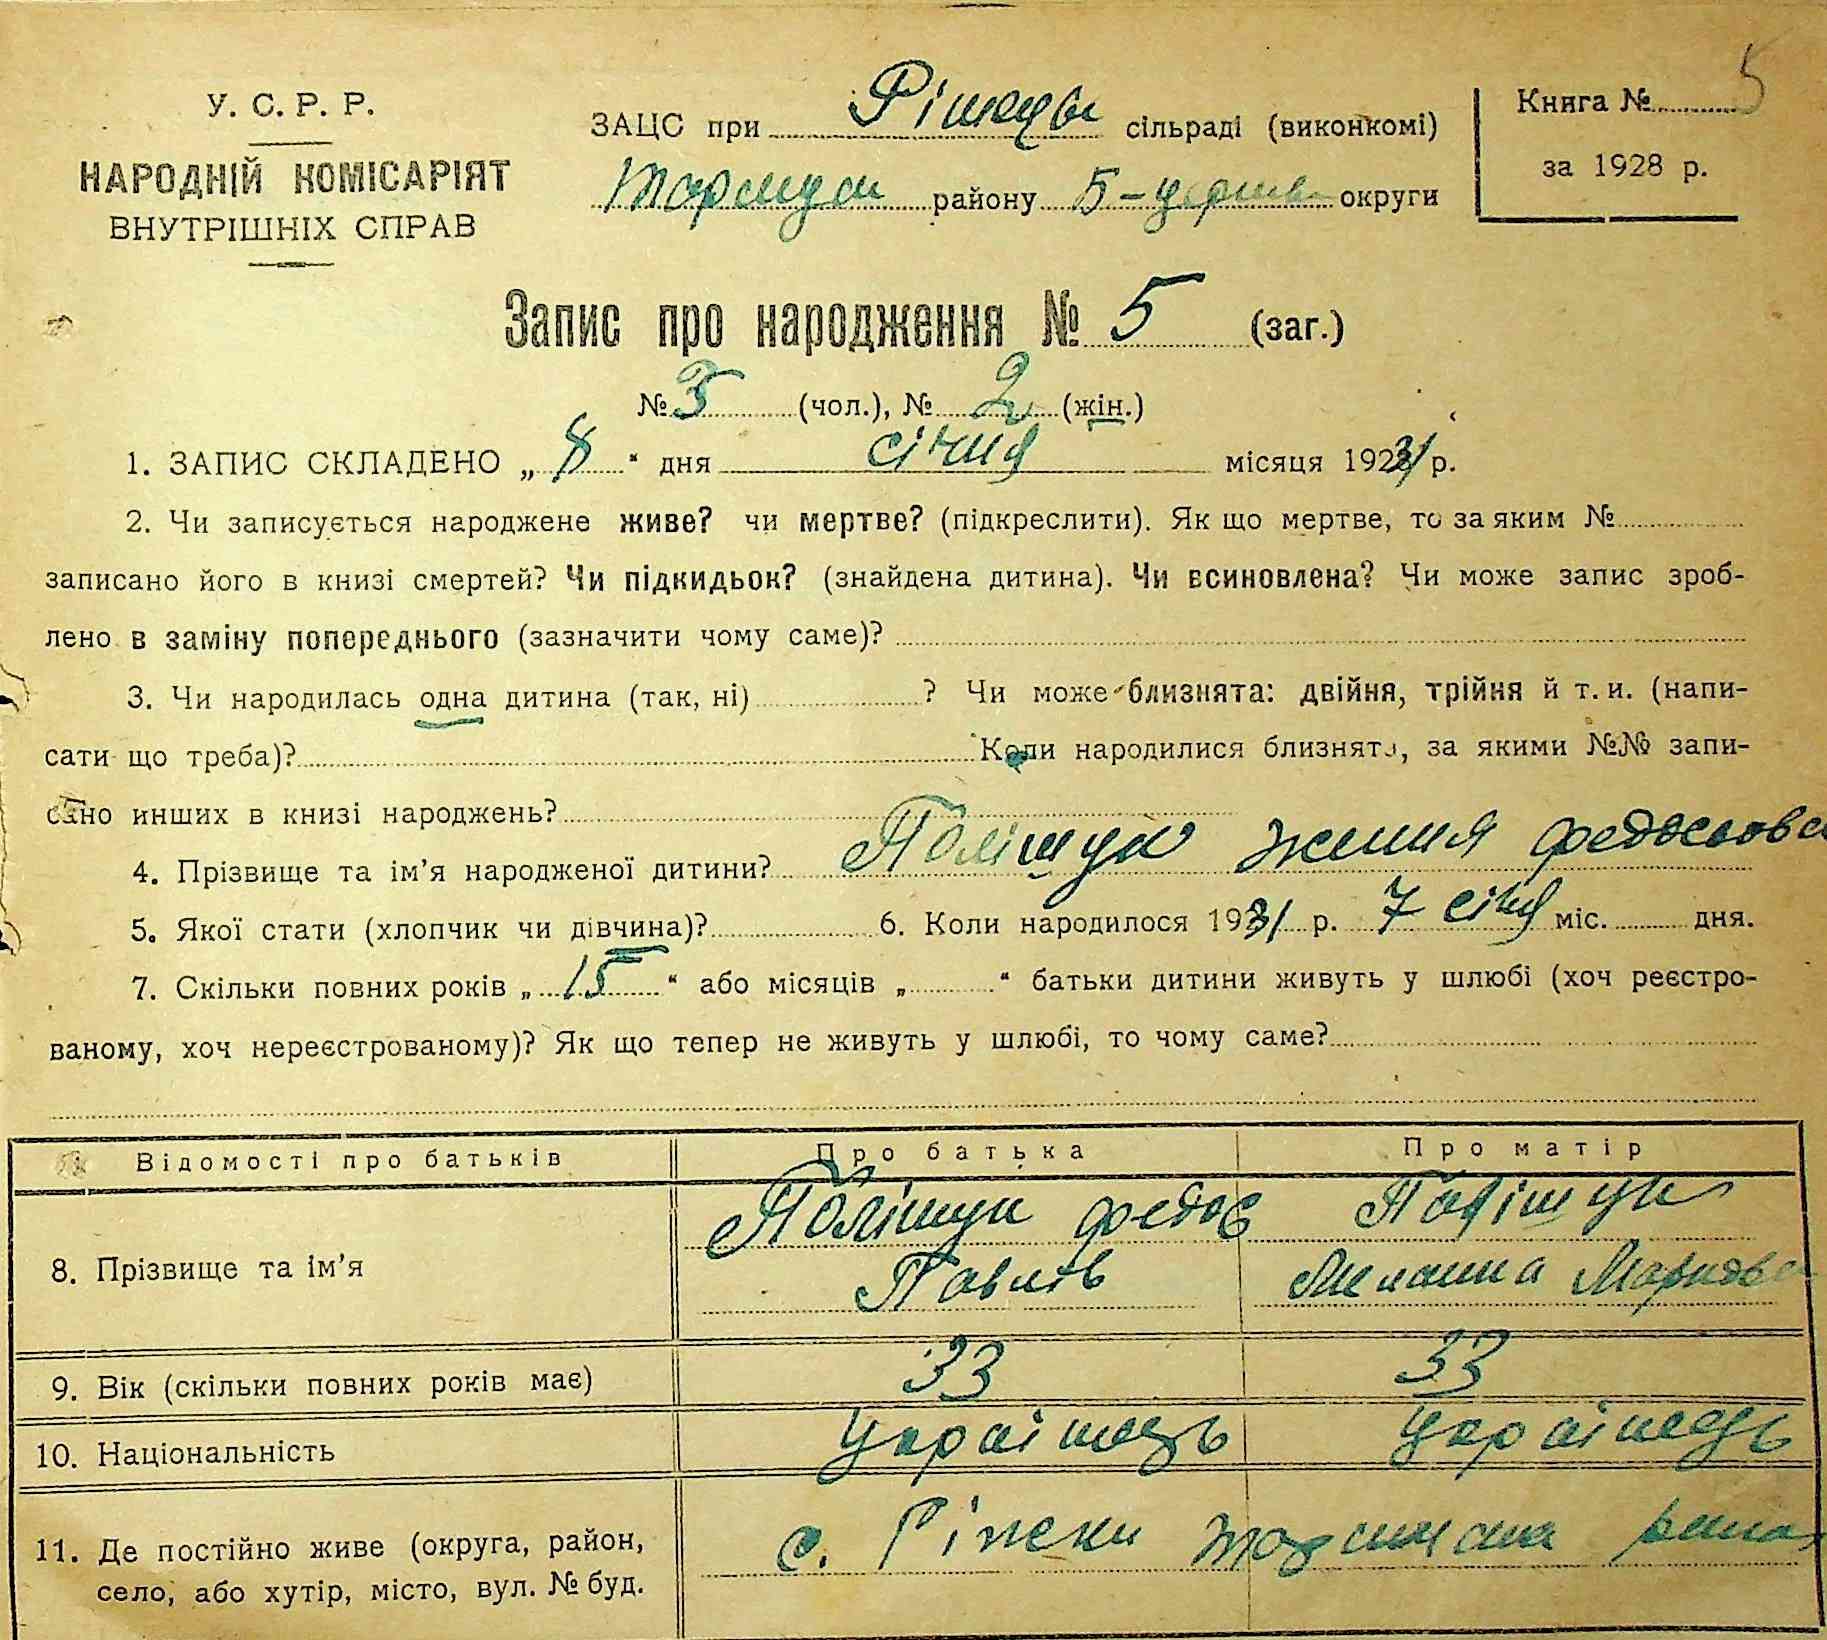 У. С. Р. Р.
НАРОДНІЙ КОМІСАРІЯТ
ВНУТРІШНІХ СПРАВ
ЗАЦС при сільраді (виконкомі)
району 5-церкв округи
Книга № 5
за 1928 р.
Запис про народження № 5 (заг.)
№ 3 (чол.), № 2 (жін.)
1. ЗАПИС СКЛАДЕНО „ 8 “ дня січня місяця 1931 р.
2. Чи записується народжене живе? чи мертве? (підкреслити). Як що мертве, то за яким №
записано його в книзі смертей? Чи підкидьок? (знайдена дитина). Чи всиновлена? Чи може запис зроб-
лено в заміну попереднього (зазначити чому саме)?
3. Чи народилась одна дитина (так, ні) ? Чи може близнята: двійня, трійня й т. и. (напи-
сати що треба)? Коли народилися близнята, за якими №№ запи-
сано инших в книзі народжень?
4. Прізвище та ім’я народженої дитини? Поліщук Женя Федосьова
5. Якої стати (хлопчик чи дівчина)? 6. Коли народилося 1931 р. 7 січня міс. дня.
7. Скільки повних років „ 15 “ або місяців „ “ батьки дитини живуть у шлюбі (хоч реєстро-
ваному, хоч нереєстрованому)? Як що тепер не живуть у шлюбі, то чому саме?
Відомості про батьків Про батька Про матір
8. Прізвище та ім’я Поліщук Федос Поліщук
Павлів Меланка Маркова
9. Вік (скільки повних років має) 33 33
10. Національність Українець Українець
11. Де постійно живе (округа, район,
село, або хутір, місто, вул. № буд. с. Ріжки